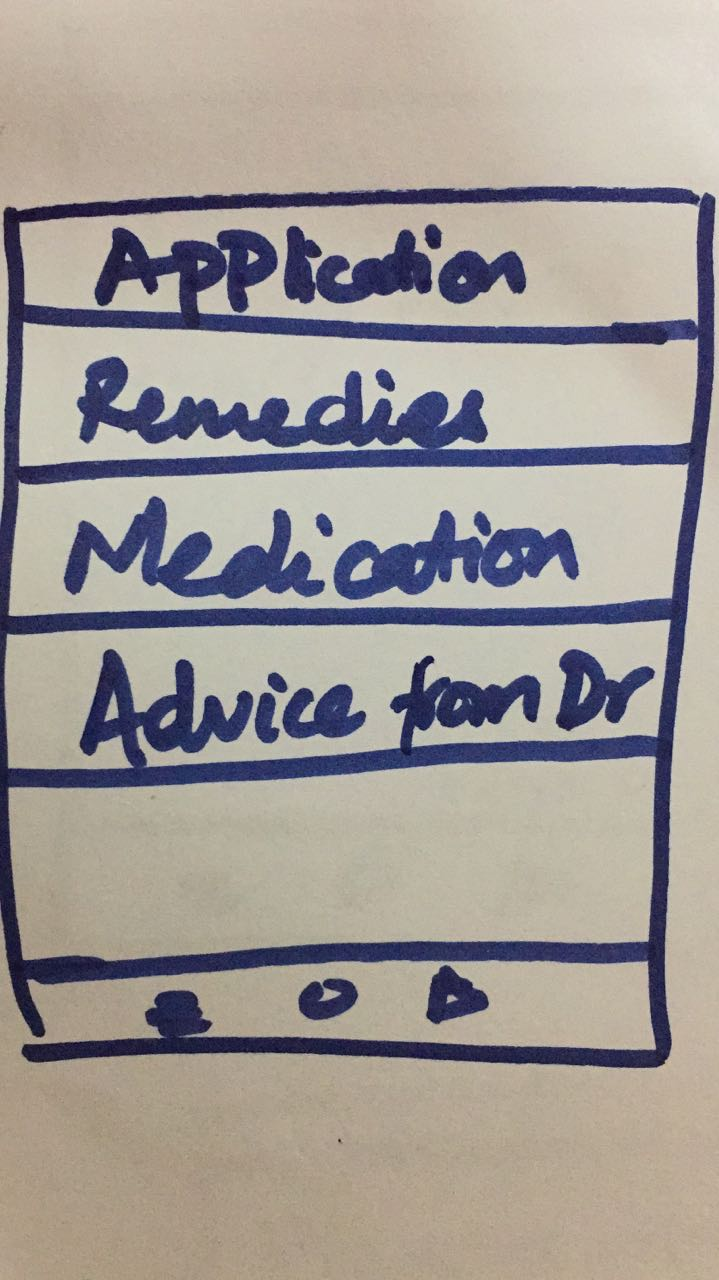 Application
Remedies
Medication
Advice from Dr